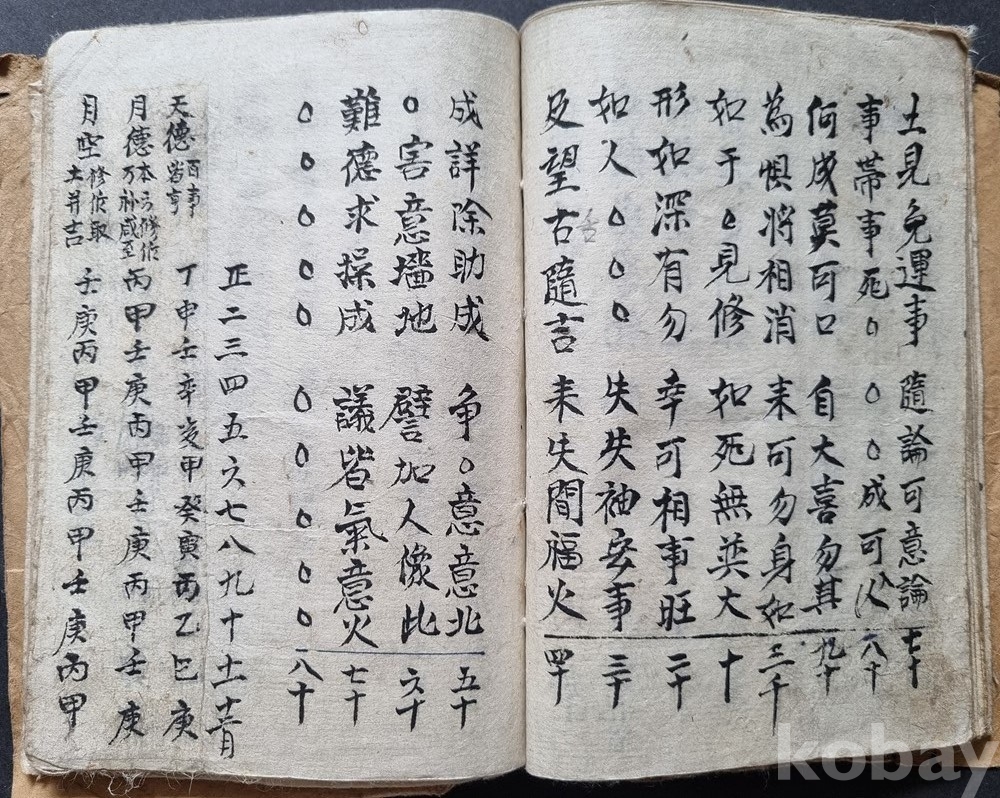 土見免運事 隨論可意論 七十
事帶事死〇 〇〇成可 八十
何成莫可口 自大喜勿其 九十
為惧将相消 来可勿身如
如于〇見修 如死無英大 十
形如深有勿 幸可相事旺 二十
如人〇〇〇 失失袖安事 三十
及望古隨言 未失間福火 四十
成詳除助成 争〇意意北 五十
〇害意墻地 譬加人像此 六十
難德求操成 議皆氣意火 七十
〇〇〇〇〇 〇〇〇〇〇 八十
正二三四五六七八九十十一十二月
天德 百事皆亨 丁申壬辛亥甲癸寅丙乙巳庚
月德 本方修作万福咸至 丙甲壬庚丙甲壬庚丙甲壬庚
月空 修作取土并吉 壬庚丙甲壬庚丙甲壬庚丙甲
kobay